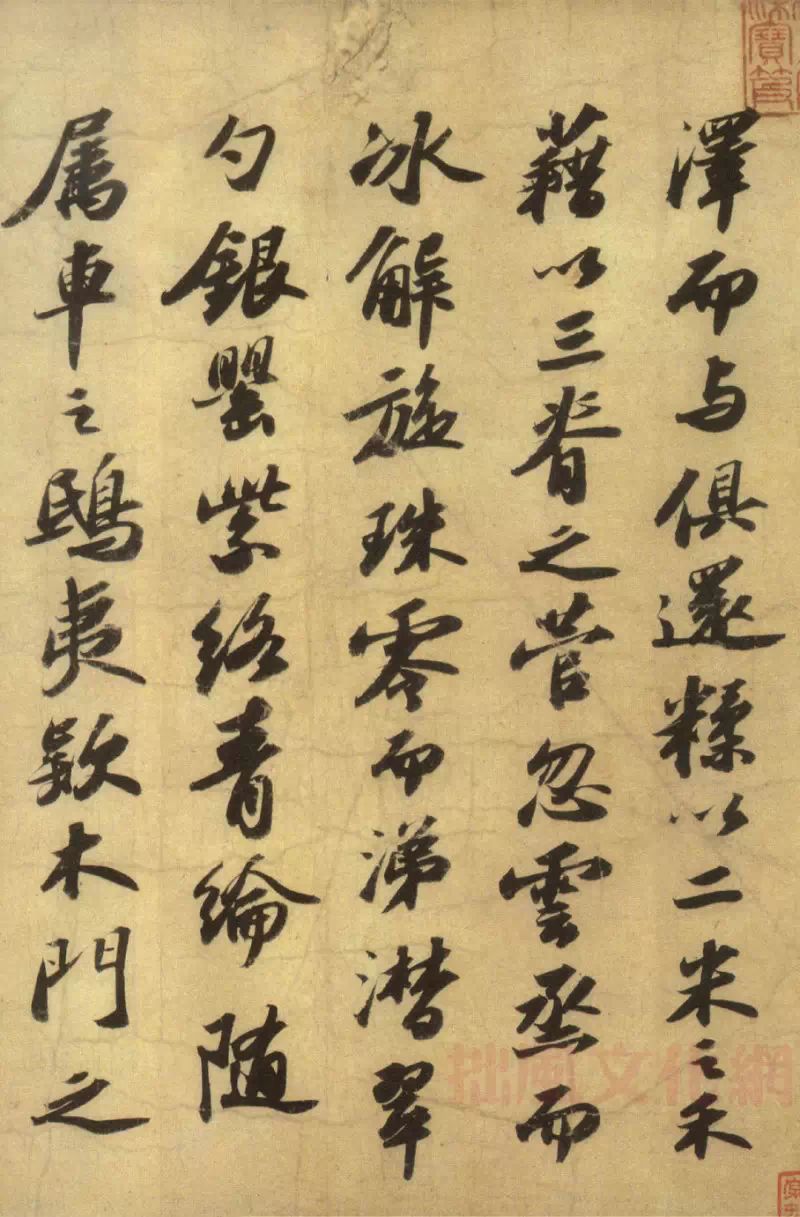 澤而与俱還糅以二米之禾
藉以三脊之菅忽雲烝而
冰解旋珠零而涕潸翠
勺銀罌紫絡青綸随
属車之鴟夷欵木門之
拙風文化網